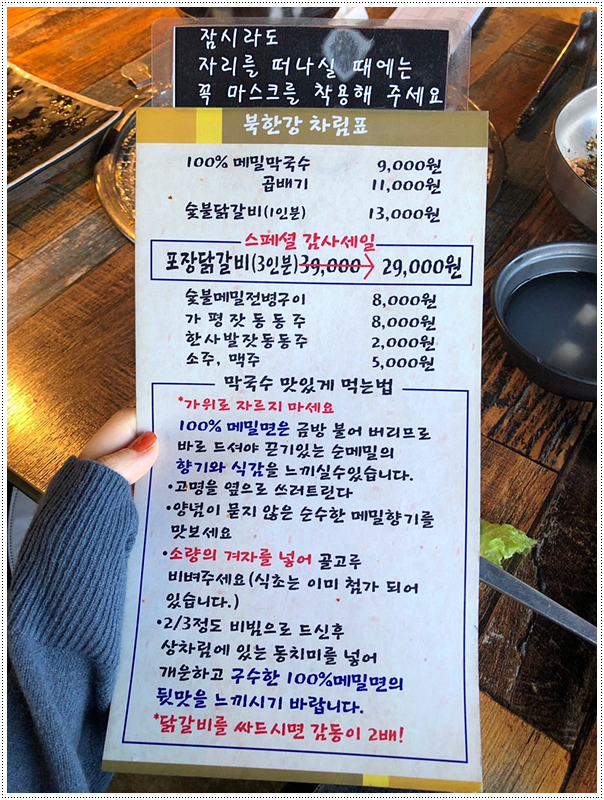 잠시라도
자리를 떠나실 때에는
꼭 마스크를 착용해 주세요
북한강 차림표
100% 메밀막국수 9,000원
곱배기 11,000원
숯불닭갈비(1인분) 13,000원
스페셜 감사세일
포장닭갈비(3인분) 39,000 → 29,000원
숯불메밀전병구이 8,000원
가평잣동동주 8,000원
한사발잣동동주 2,000원
소주, 맥주 5,000원
막국수 맛있게 먹는법
*가위로 자르지 마세요
100% 메밀면은 금방 불어 버리므로
바로 드셔야 끈기있는 순메밀의
향기와 식감을 느끼실수있습니다.
•고명을 옆으로 쓰러트린다
•양념이 묻지 않은 순수한 메밀향기를
맛보세요
•소량의 겨자를 넣어 골고루
비벼주세요(식초는 이미 첨가 되어
있습니다.)
•2/3정도 비빔으로 드신후
상차림에 있는 동치미를 넣어
개운하고 구수한 100%메밀면의
뒷맛을 느끼시기 바랍니다.
*닭갈비를 싸드시면 감동이 2배!